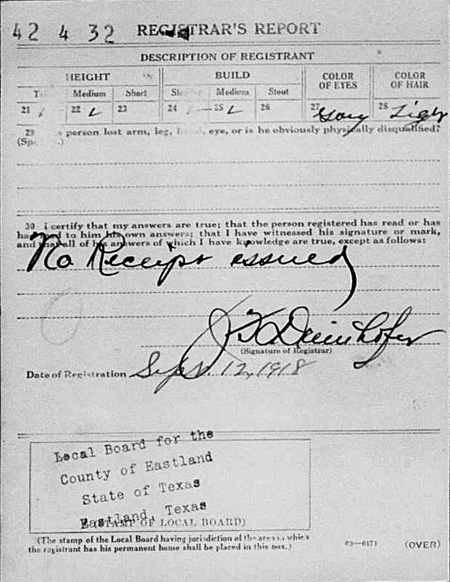 42 4 32 REGISTRAR'S REPORT
DESCRIPTION OF REGISTRANT
HEIGHT BUILD COLOR OF EYES COLOR OF HAIR
Medium Short Medium Stout
21 22 23 24 25 26 27 Gray 28 Light
29 person lost arm, leg, eye, or is he obviously physically disqualified?
30 I certify that my answers are true; that the person registered has read or has
had read to him his own answers; that I have witnessed his signature or mark,
and that all of his answers of which I have knowledge are true, except as follows:
No Receipt issued
(Signature of Registrar)
Date of Registration Sept. 12, 1918
Local Board for the
County of Eastland
State of Texas
Eastland, Texas
(STAMP OF LOCAL BOARD)
(The stamp of the Local Board having jurisdiction of the area in which
the registrant has his permanent home shall be placed in this box.)
03—6171 (OVER)